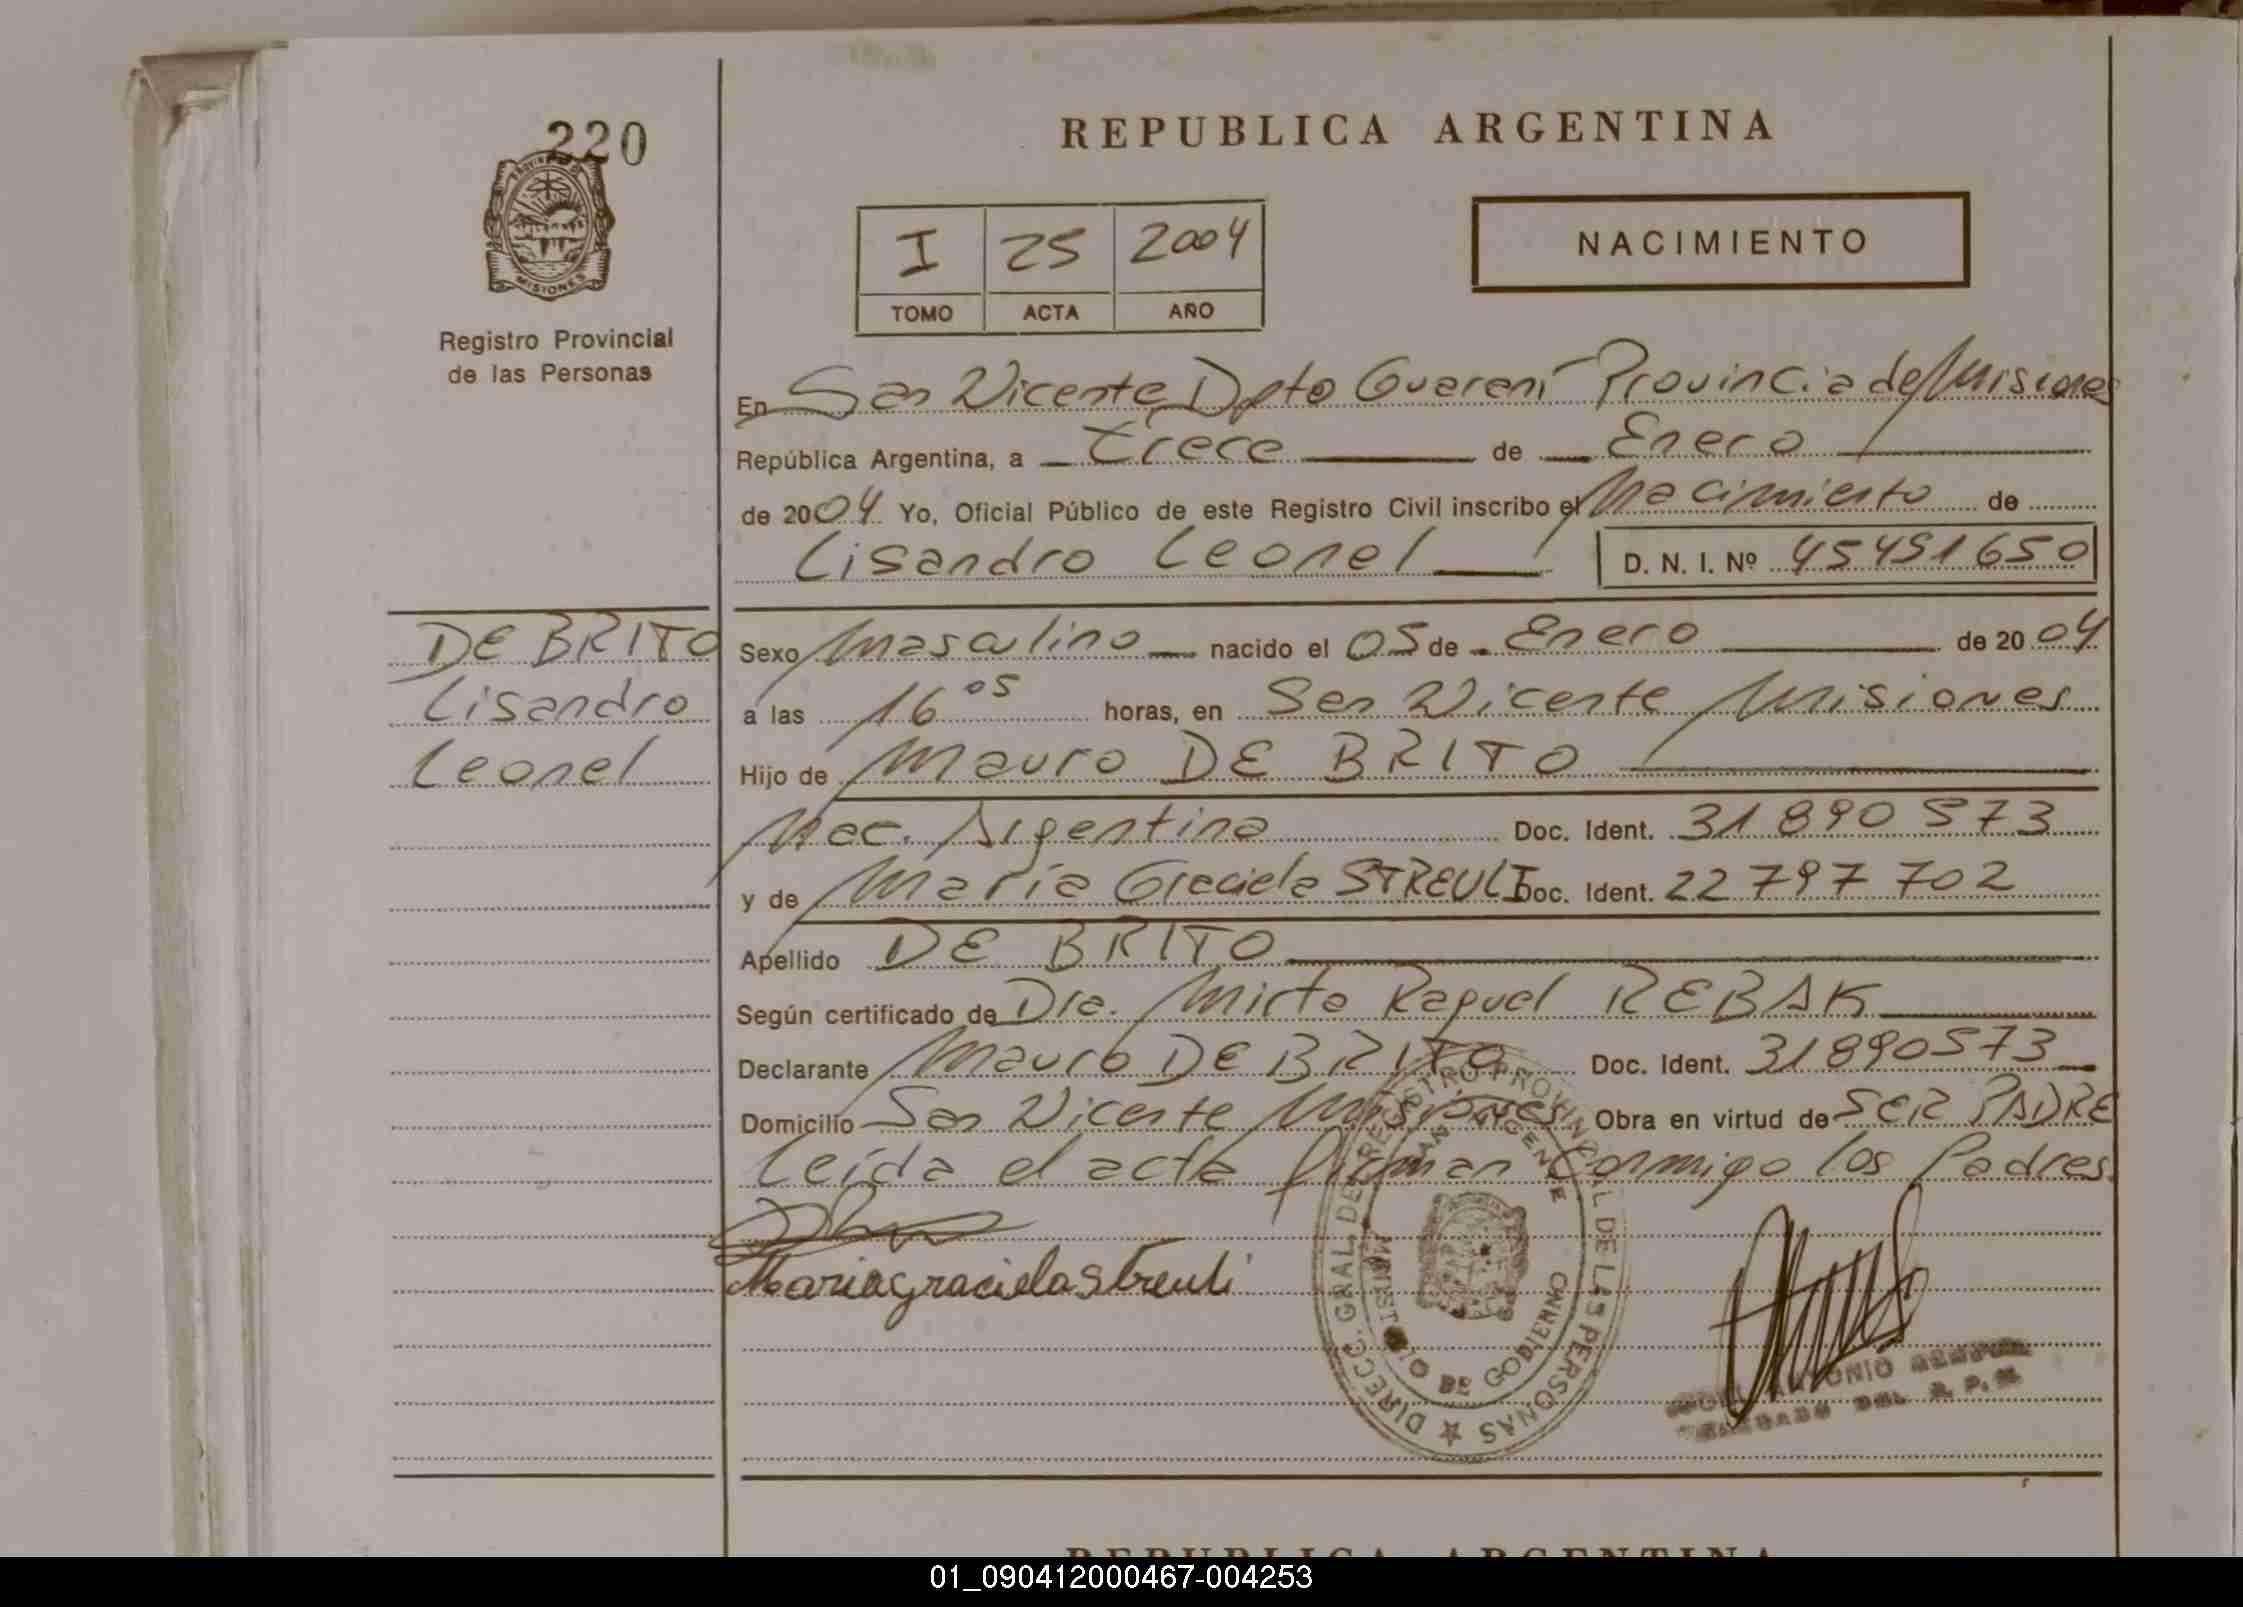 220
PROVINCIA DE
MISIONES
Registro Provincial
de las Personas
REPUBLICA ARGENTINA
I 25 2004
TOMO ACTA AÑO
NACIMIENTO
En San Vicente, Dpto Guaraní Provincia de Misiones
República Argentina, a trece de Enero
de 2004 Yo, Oficial Público de este Registro Civil inscribo el Nacimiento de
Lisandro Leonel D. N. I. Nº 45451650
DE BRITO
Lisandro
Leonel
Sexo Masculino nacido el 05 de Enero de 2004
a las 16 05 horas, en San Vicente Misiones
Hijo de Mauro DE BRITO
Nac. Argentina Doc. Ident. 31890573
y de María Graciela STREULI Doc. Ident. 22797702
Apellido DE BRITO
Según certificado de Dra. Mirta Raquel REBAK
Declarante Mauro DE BRITO Doc. Ident. 31890573
Domicilio San Vicente Misiones Obra en virtud de SER PADRE
Leída el acta firman conmigo los Padres
Maria graciela streuli
DIRECC. GRAL. DE REGISTRO PROVINCIAL DE LAS PERSONAS
SAN VICENTE
MINISTERIO DE GOBIERNO
ANTONIO
DEL R. P.
REPUBLICA ARGENTINA
01_090412000467-004253